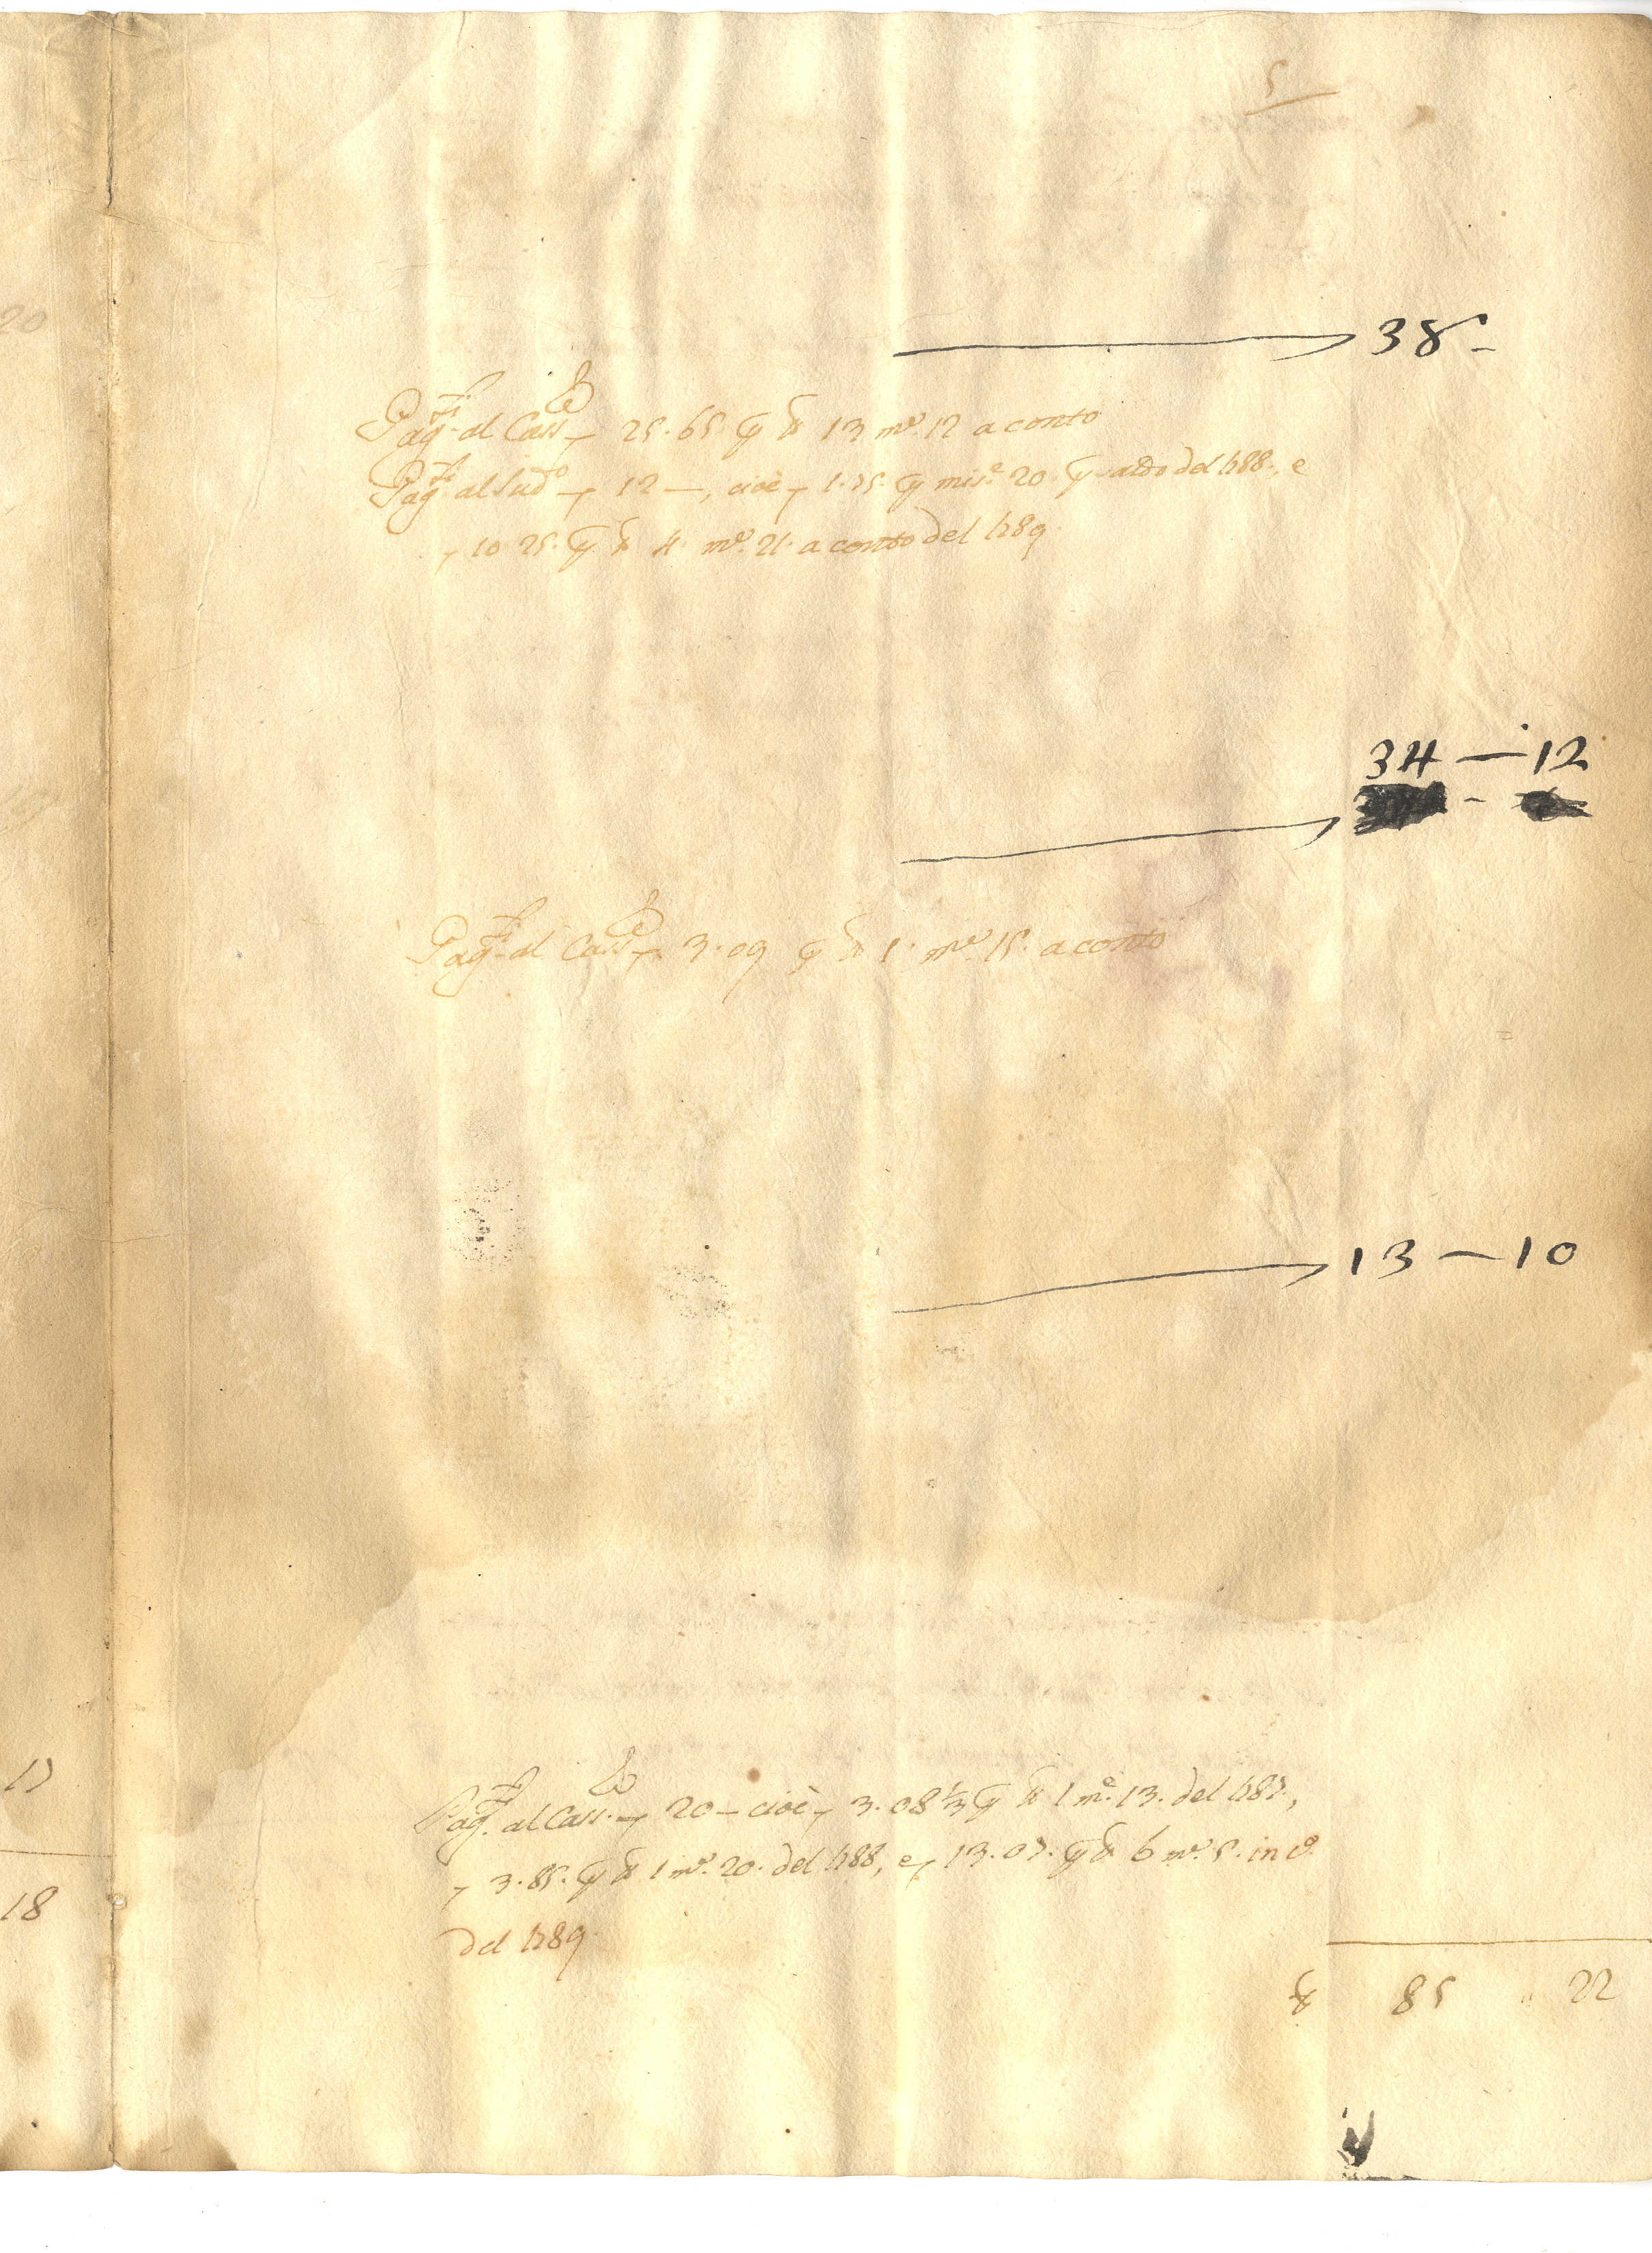 5
20
38 -
Pag.ti al Cass.re 25.65. p 13 m.e 12 a conto
Pag.ti al sud.o 12 —, cioè 1.75. p mis.e 20. p saldo del 1788., e
10.25. p 4. m.e 21. a conto del 1789.
34 — 12
Pag.ti al Cass.re 3.09 p 1. m.e 15. a conto
13 — 10
17
Pag.ti al Cass.re 20 — cioè 3.08 1/3 p 1 m.e 13. del 1787.,
3.85. p 1 m.e 20. del 1788, e 13.07. p 6 m.e 5. in c.o
18
del 1789.
85 " 22